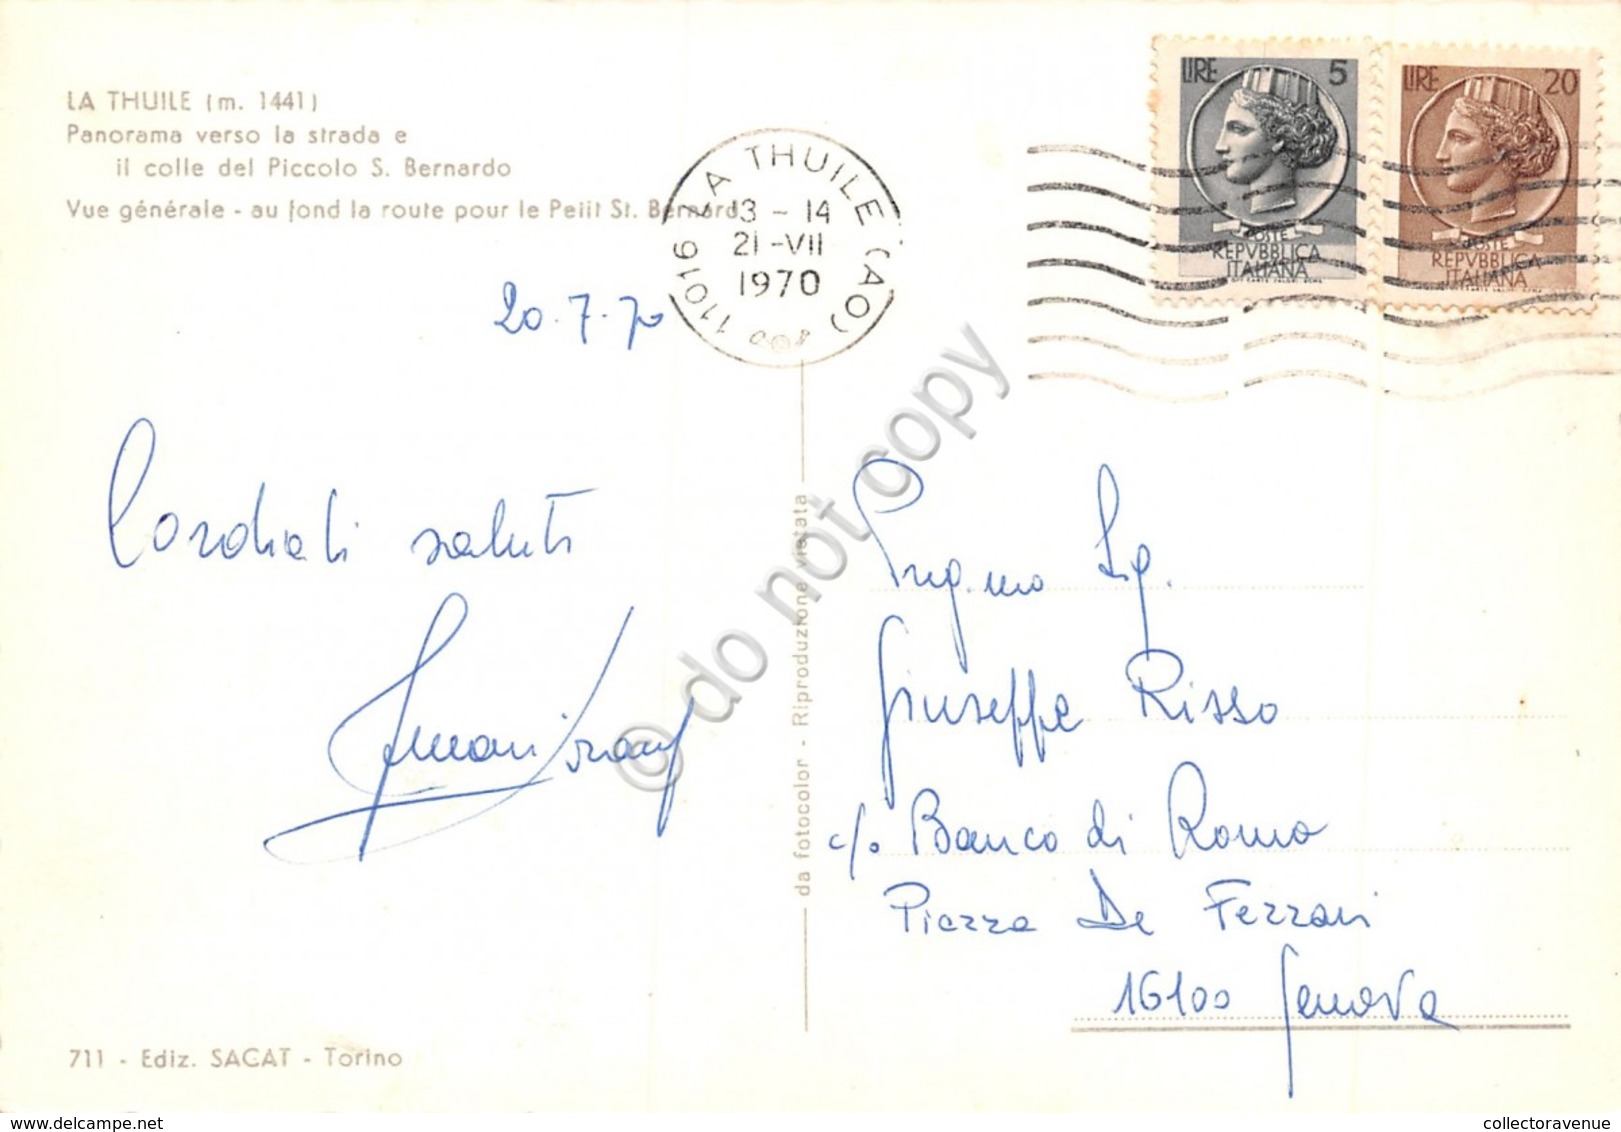 LA THUILE (m. 1441)
Panorama verso la strada e
il colle del Piccolo S. Bernardo
Vue générale - au fond la route pour le Petit St. Bernard
11016 LA THUILE (AO)
13 - 14
21 -VII
1970
LIRE 5
POSTE
REPVBBLICA
ITALIANA
LIRE 20
POSTE
REPVBBLICA
ITALIANA
20.7.70
Cordiali saluti
da fotocolor - Riproduzione vietata
© do not copy
Sig.
Giuseppe Risso
c/o Banco di Roma
Piazza De Ferrari
16100 Genova
711 - Ediz. SACAT - Torino
collectoravenue - www.delcampe.net